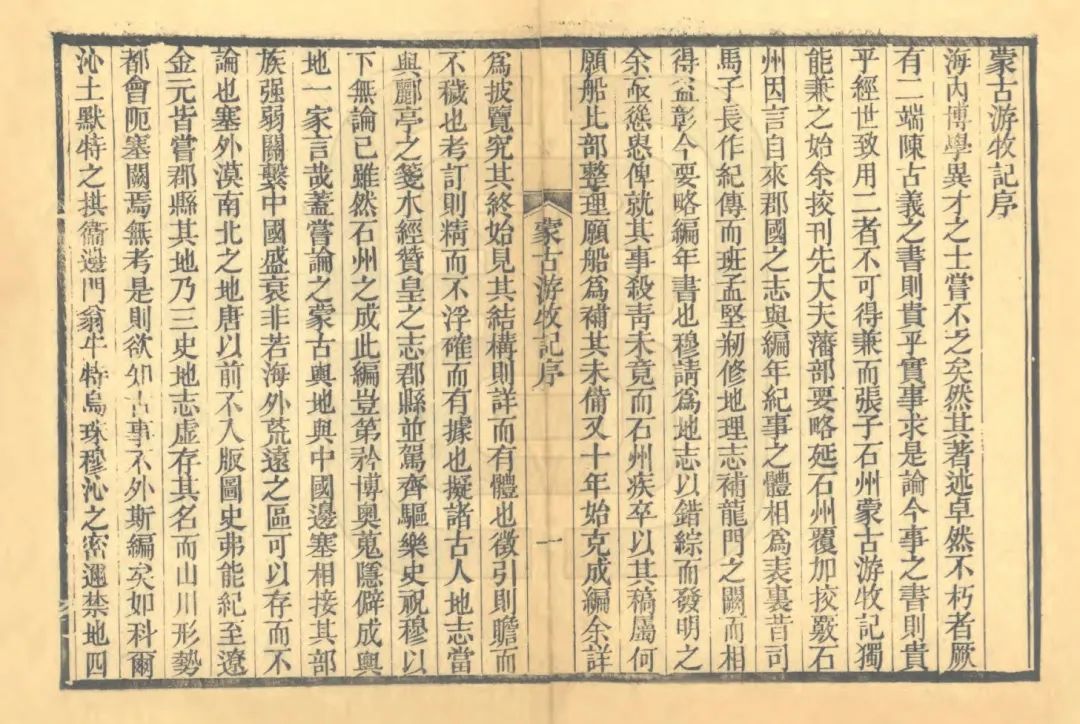 蒙古游牧記序
海內博學異才之士嘗不乏矣然其著述卓然不朽者厥
有二端陳古義之書則貴乎實事求是論今事之書則貴
乎經世致用二者不可得兼而張子石州蒙古游牧記獨
能兼之始余挍刊先大夫藩部要略延石州覆加挍覈石
州因言自來郡國之志與編年紀事之體相為表裏昔司
馬子長作紀傳而班孟堅剏修地理志補龍門之闕而相
得益彰今要略編年書也穆請為地志以錯綜而發明之
余亟慫恿俾就其事殺靑未竟而石州疾卒以其稿屬何
願船比部整理願船爲補其未備又十年始克成編余詳
蒙古游牧記序
一
爲披覽究其終始見其結構則詳而有體也徵引則贍而
不穢也考訂則精而不浮確而有據也擬諸古人地志當
與酈亭之箋水經贊皇之志郡縣並駕齊驅樂史祝穆以
下無論已雖然石州之成此編豈第矜博奧蒐隱僻成輿
地一家言哉蓋嘗論之蒙古輿地與中國邊塞相接其部
族强弱關繫中國盛衰非若海外荒遠之區可以存而不
論也塞外漠南北之地唐以前不入版圖史弗能紀至遼
金元皆嘗郡縣其地乃三史地志虛存其名而山川形勢
都會阨塞闕焉無考是則欲知古事不外斯編矣如科爾
沁土默特之拱衞邊門翁牛特烏珠穆沁之密邇禁地四